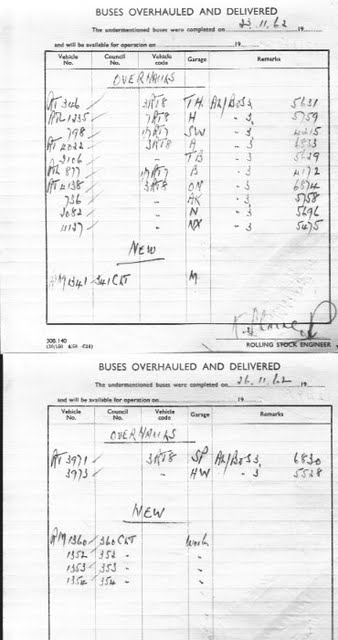 BUSES OVERHAULED AND DELIVERED
The undermentioned buses were completed on 23.11.62 19
and will be available for operation on 19
Vehicle No. Council No. Vehicle code Garage Remarks
OVERHAULS
RT 3146 3RT8 TH AR/BoS3, 5631
RTL 1235 7RT8 H - 3, 5759
798 17RT7 SW - 3, 4215
RT 4022 3RT8 A - 3 6833
2106 " TB - 3, 5629
RTL 877 17RT7 B - 3 4172
RT 4138 3RT8 ON - 3 6874
736 " AK - 3 5758
3082 " N - 3 5696
" NX - 3 5475
NEW
RM 1341 341 CLT M
308.140
ROLLING STOCK ENGINEER
BUSES OVERHAULED AND DELIVERED
The undermentioned buses were completed on 26.11.62 19
and will be available for operation on 19
Vehicle No. Council No. Vehicle code Garage Remarks
OVERHAULS
RT 3971 3RT8 SP AR/BoS3, 6830
3973 " HW - 3 5528
NEW
RM 1360 360 CLT Works
1352 352 " "
1353 353 " "
1354 354 " "